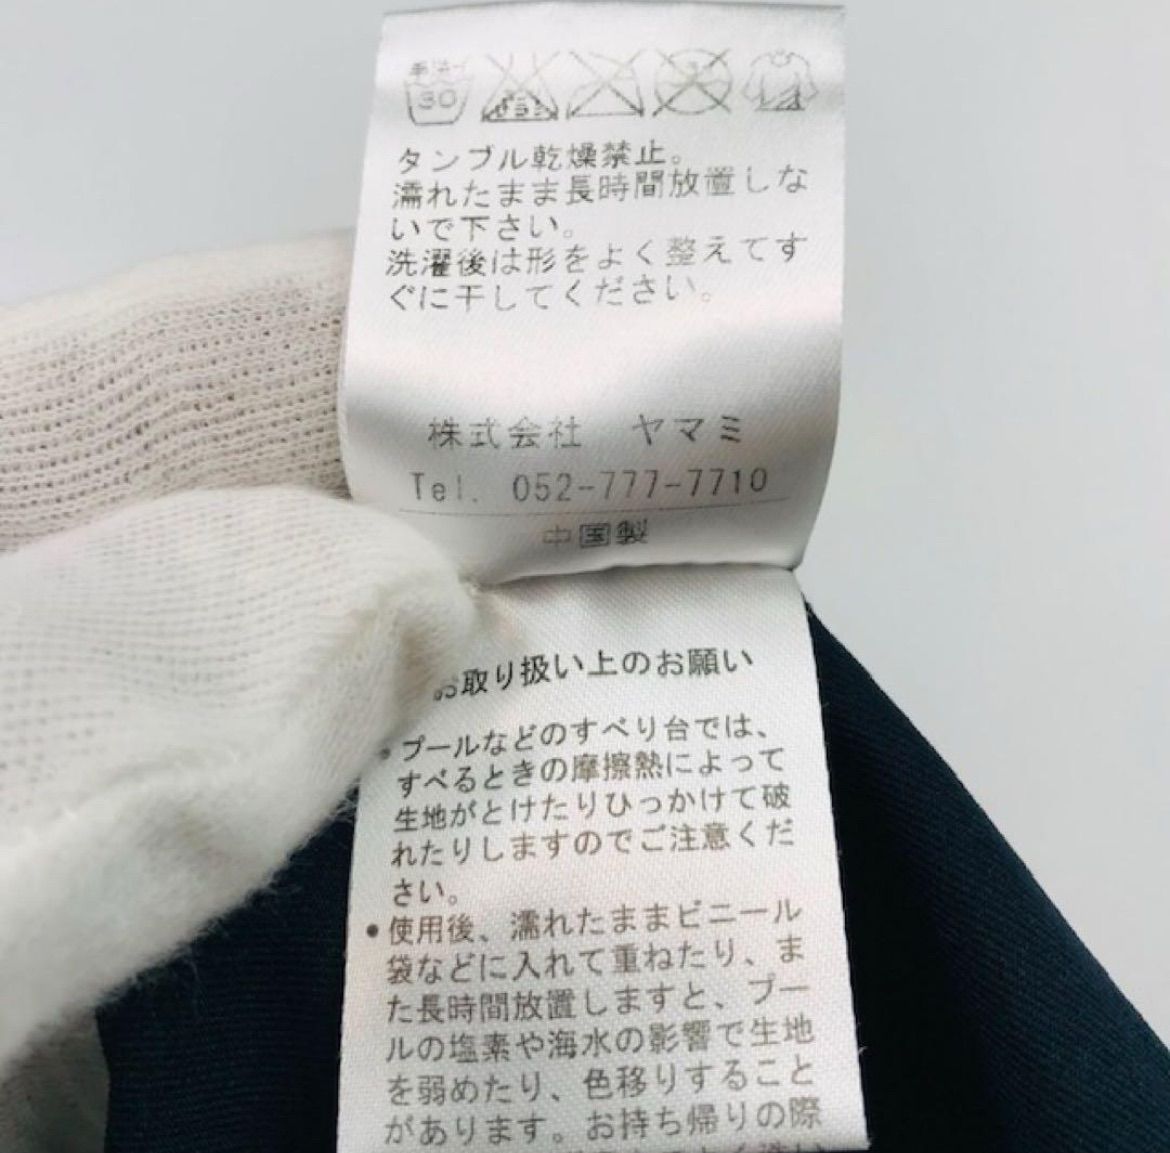 手洗イ
30
タンブル乾燥禁止。
濡れたまま長時間放置しな
いで下さい。
洗濯後は形をよく整えてす
ぐに干してください。
株式会社 ヤマミ
Tel. 052-777-7710
中国製
お取り扱い上のお願い
• プールなどのすべり台では、
すべるときの摩擦熱によって
生地がとけたりひっかけて破
れたりしますのでご注意くだ
さい。
• 使用後、濡れたままビニール
袋などに入れて重ねたり、ま
た長時間放置しますと、プー
ルの塩素や海水の影響で生地
を弱めたり、色移りすること
があります。お持ち帰りの際